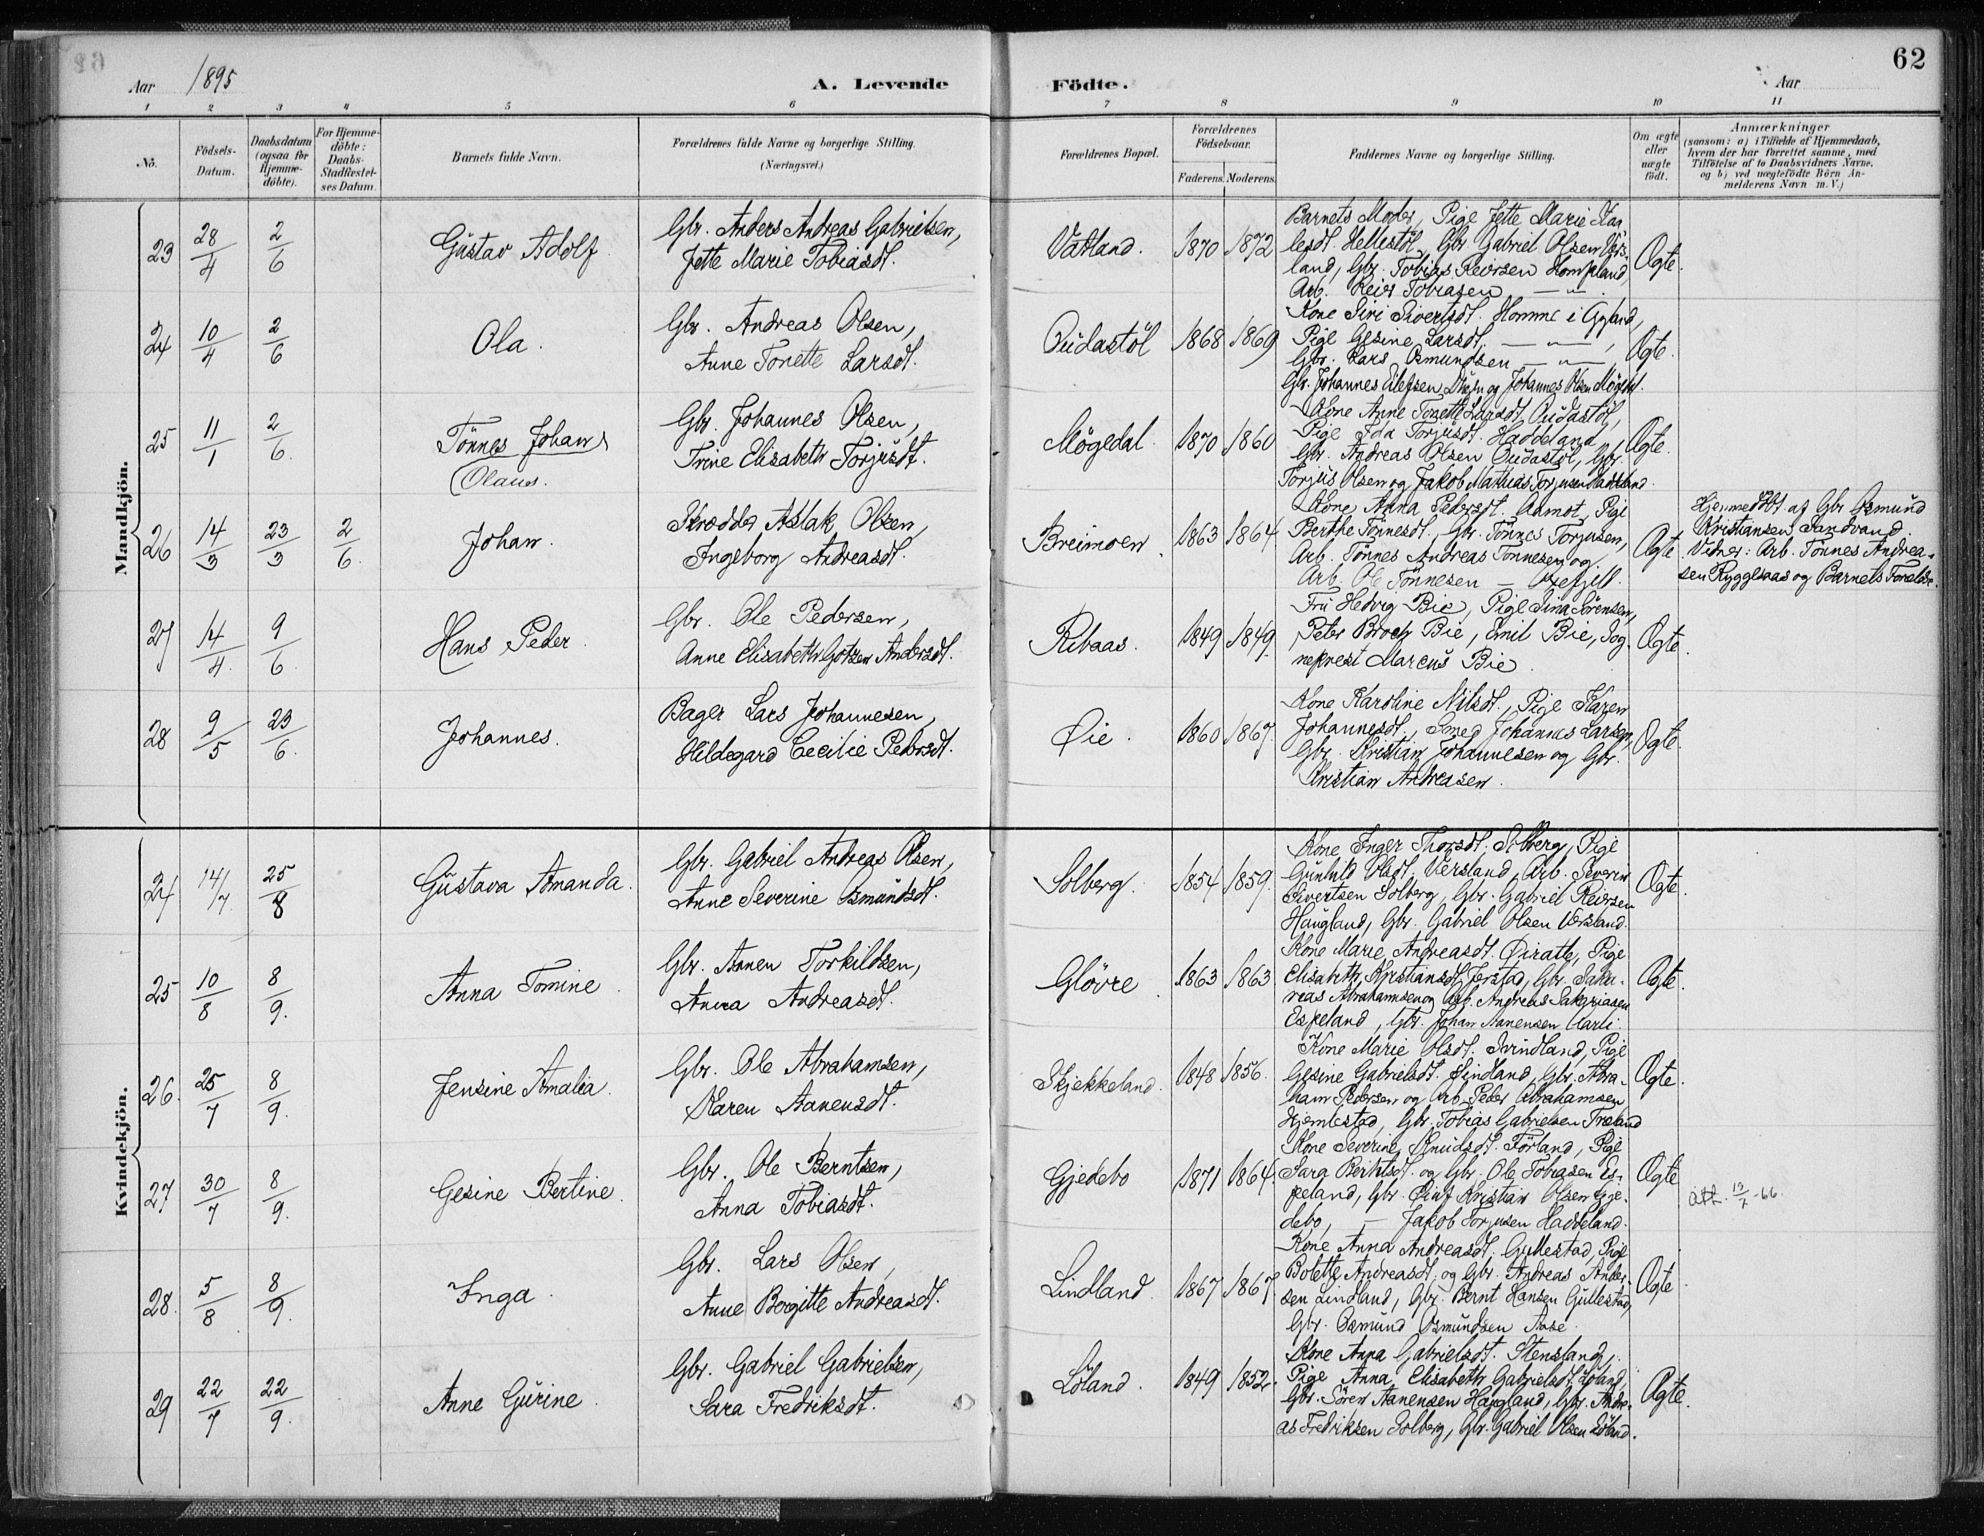 62
Aar 1895
A. Levende
Födte.
Aar
1 2 3 4 5 6 7 8 9 10 11
No.
Födsels-Datum.
Daabsdatum (ogsaa for Hjemme-döbte).
For Hjemme-döbte: Daabs-Stadfæstel-ses Datum.
Barnets fulde Navn.
Forældrenes fulde Navne og borgerlige Stilling.
(Næringsvei.)
Forældrenes Bopæl.
Forældrenes Födselsaar.
Faderens. Moderens.
Faddernes Navne og borgerlige Stilling.
Om ægte eller uægte födt.
Anmærkninger
(saasom: a) i Tilfælde af Hjemmedaab,
hvem der har forrettet samme, med
Tilföielse af to Daabsvidners Navne,
og b) ved uægtefödte Börn An-
melderens Navn m. V.)
Mandkjön.
23 28/4 2/6 Gustav Adolf
Gbr. Anders Andreas Gabrielsen,
Jette Marie Tobiasdt.
Vatland. 1870 1872
Barnets Moder, Pige Jette Marie Kar-
lesdt. Hellestöl, Gbr. Gabriel Olsen Vers-
land, Gbr. Tobias Reiersen Kompland,
Arb. Reier Tobiasen — " —
Ægte.
24 10/4 2/6 Ola.
Gbr. Andreas Olsen,
Anne Tonette Larsdt.
Oudastöl 1868 1869
Kone Siri Sivertsdt. Homme i Gyland,
Pige Gesine Larsdt. — " —,
Gbr. Lars Osmundsen — " —
Gbr. Johannes Elefsen og Johannes Olsen Mögedal.
Ægte.
25 11/1 2/6 Tönnes Johan
Olaus.
Gbr. Johannes Olsen,
Trine Elisabeth Torjusdt.
Mögedal. 1870 1860
Kone Anne Tonette Larsdt. Oudastöl,
Pige Ida Torjusdt. Haddeland,
Gbr. Andreas Olsen Oudastöl, Gbr.
Torjus Olsen og Jakob Mathias Torjusen Haddeland.
Ægte.
26 14/3 23/3 2/6 Johan.
Skrædder Aslak Olsen,
Ingeborg Andreasdt.
Breimoen. 1863 1864
Kone Anna Pedersdt. Aamot, Pige
Berthe Tönnesdt., Gbr. Tönnes Torjusen,
Arb. Tönnes Andreas Tönnesen og
Arb. Ole Tönnesen —
Ægte
Hjemmedöbt af Gbr Osmund
Kristiansen Sandvand
Vidner: Arb. Tönnes Andrea-
sen Ryggesaas og Barnets Forældre.
27 14/4 9/6 Hans Peder.
Gbr. Ole Pedersen,
Anne Elisabeth Gotzen Andersdt.
Ribaas. 1849 1849
Fru Hedvig Bie, Pige Sina Sörensen,
Peter Broch Bie, Emil Bie, Sog-
neprest Marcus Bie.
Ægte.
28 9/5 23/6 Johannes.
Bager Lars Johannesen,
Hildegard Cecilie Pedersdt.
Øie. 1860 1867
Kone Karoline Nilsdt., Pige Karen
Johannesdt., Smed Johannes Larsen,
Gbr. Kristian Johannesen og Gbr.
Kristian Andreasen.
Ægte.
Kvindekjön.
24 14/7 25/8 Gustava Amanda.
Gbr. Gabriel Andreas Olsen,
Anne Severine Osmundsdt.
Solberg. 1854 1859.
Kone Inger Thorsdt. Solberg, Pige
Gunhild Olsdt. Versland, Arb. Severin
Sivertsen Solberg, Gbr. Gabriel Reiersen
Haugland, Gbr. Gabriel Olsen Versland.
Ægte.
25 10/8 8/9. Anna Tomine.
Gbr. Aanen Torkildsen,
Anna Andreasdt.
Glövre. 1863 1863
Kone Marie Andreasdt. Øiratte, Pige
Elisabeth Kristiansdt. Jerstad, Gbr. Saka-
rias Abrahamsen og Arb. Andreas Sakariasen
Espeland, Gbr. Johan Aanensen
Ægte.
26. 25/7 8/9. Jensine Amalia.
Gbr. Ole Abrahamsen,
Karen Aanensdt.
Skjekkeland. 1848 1856.
Kone Marie Olsdt. Svindland, Pige
Gesine Gabrielsdt. Sindland, Gbr. Abra-
ham Pedersen og Arb. Peder Abrahamsen
Hjemlestad, Gbr. Tobias Gabrielsen Træland
Ægte.
27 30/7 8/9. Gesine Bertine.
Gbr. Ole Berntsen,
Anna Tobiasdt.
Gjedebo 1871 1864
Kone Severine Knudsdt. Förland, Pige
Sara Berntsdt. og Gbr. Ole Tobiasen Es-
peland, Gbr. Kristian Olsen Gje-
debo, — Jakob Torjusen Haddeland.
Ægte
att. 13/7-66.
28. 5/8 8/9. Inga.
Gbr. Lars Olsen,
Anne Borgitte Andreasdt.
Lindland. 1867 1867.
Kone Anna Andreasdt. Gullestad, Pige
Bolette Andreasdt. og Gbr. Andreas Ander-
sen Lindland, Gbr. Bernt Hansen Gullestad,
Gbr. Osmund Osmundsen Aase.
Ægte
29 22/7 22/9. Anne Gurine.
Gbr. Gabriel Gabrielsen,
Sara Fredriksdt.
Löland. 1849 1852.
Kone Anna Gabrielsdt. Stensland,
Pige Anna Elisabeth Gabrielsdt. Löland,
Gbr. Sören Aanensen Haugland, Gbr. Andre-
as Fredriksen Solberg, Gbr. Gabriel Olsen Löland.
Ægte.